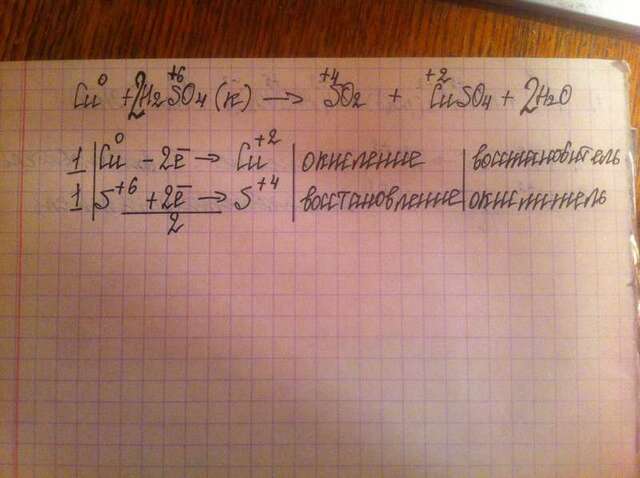 Cu⁰ + 2H₂S⁺⁶O₄ (к) → S⁺⁴O₂ + Cu⁺²SO₄ + 2H₂O
1 | Cu⁰ - 2ē → Cu⁺² | окисление | восстановитель
1 | S⁺⁶ + 2ē → S⁺⁴ | восстановление | окислитель
2